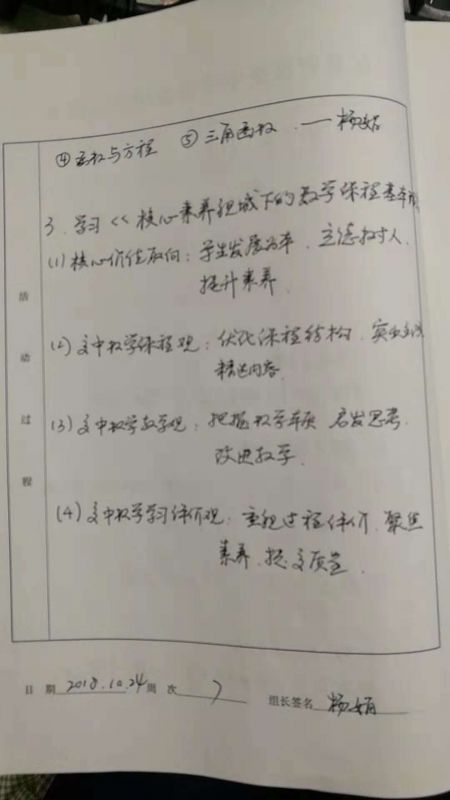 ④函数与方程 ⑤三角函数.——杨娟
3.学习<<核心素养视域下的数学课程基本
(1)核心价值取向:学生发展为本,立德树人,
提升素养.
活
(2)高中数学课程观:优化课程结构,突出主线
动
精选内容.
过
(3)高中数学教学观:把握数学本质 启发思考,
改进教学.
程
(4)高中数学学习评价观:重视过程评价,聚焦
素养,提高质量.
日 期 2018.10.24 周 次 7 组长签名 杨娟